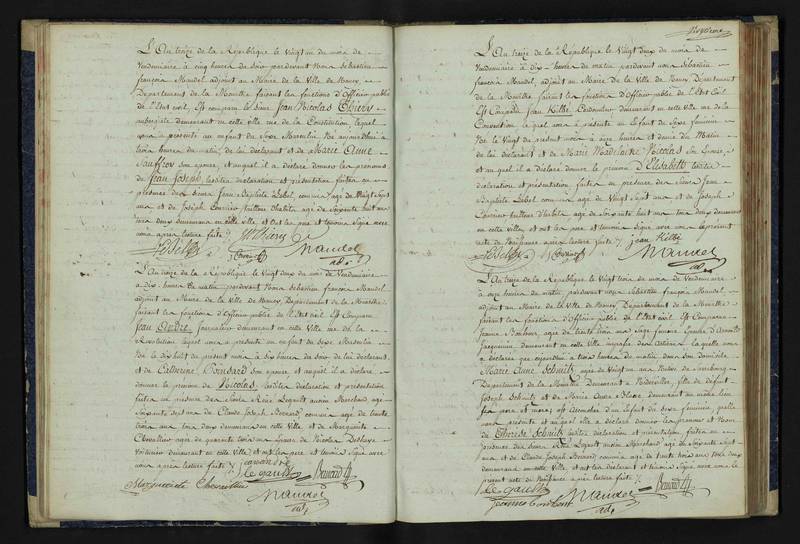 L'An treize de la République le Vingt un du mois de
Vendemiaire à cinq heures de soir pardevant Nous Sébastien
françois Mandel adjoint au Maire de la Ville de Nancy
Département de la Meurthe faisant les fonctions d'Officier public
de l'Etat civil, Est comparu le Sieur Jean Nicolas Thiery
aubergiste demeurant en cette Ville rue de la Constitution lequel
nous a présenté un enfant du Sexe Masculin Né aujourd'hui à
trois heures du matin, de lui déclarant et de Marie Anne
son épouse, et auquel il a déclaré donner les prénoms
de Jean Joseph, lesdites déclaration et présentation faites en
présence des Sieurs Jean Baptiste Lebel, commis agé de Vingt Sept
ans et de Joseph agé de Soixante huit ans
tous deux demeurans en cette Ville, et ont les père et témoins Signé avec
nous après lecture faite
Mandel
adj.
L'An treize de la République le Vingt deux du mois de Vendemiaire
à dix heures du matin pardevant Nous Sébastien françois Mandel
adjoint au Maire de la Ville de Nancy Département de la Meurthe
faisant les fonctions d'Officier public de l'Etat civil Est Comparu
Jean André, Journalier demeurant en cette Ville rue de la
Révolution lequel nous a présenté un enfant du Sexe Masculin
Né le dix huit du présent mois à dix heures du soir de lui déclarant
et de Catherine son épouse et auquel il a déclaré
donner le prénom de Nicolas, lesdites déclaration et présentation
faites en présence des Sieurs Remi Legault ancien Marchand agé
Soixante Sept ans de Claude Joseph Bernard commis agé de trente
trois ans tous deux demeurans en cette Ville et de Marguerite
Chevallier agée de quarante trois ans épouse de Nicolas
Voiturier demeurant en cette Ville, et ont les témoins Signé avec
nous après lecture faite
Le gault Bernard
Marguerite Chevallier
Mandel
adj.
L'An treize de la République le Vingt deux du mois de
Vendemiaire à dix heures du matin pardevant nous Sébastien
françois Mandel, adjoint au Maire de la Ville de Nancy Département
de la Meurthe faisant les fonctions d'Officier public de l'Etat Civil
Est Comparu Jean Kilbe Cordonnier demeurant en cette Ville rue de la
Convention lequel nous a présenté un Enfant du Sexe féminin
Né le Vingt du présent mois à onze heures et demie du Matin
de lui déclarant et de Marie Madelaine Nicolas son Epouse,
et auquel il a déclaré donner le prénom D'Elisabeth lesdites
déclaration et présentation, faites en présence des Sieurs Jean
Baptiste Lebel commis agé de Vingt Sept ans et de Joseph
agé de Soixante huit ans tous deux demeurans
en cette Ville, et ont les père et témoins Signé avec nous le présent
acte de Naissance après lecture faite Jean Kilbe
Mandel
adj.
L'An treize de la République le Vingt trois du mois de Vendemiaire
à onze heures du matin, pardevant nous Sébastien françois Mandel,
adjoint au Maire de la Ville de Nancy Département de la Meurthe
faisant les fonctions d'Officier public de l'Etat civil Est Comparue
Jeanne agée de trente trois ans Sage femme Epouse d'Arnould
Jacquemin demeurant en cette Ville laquelle nous
a déclaré que cejourd'hui à trois heures du matin dans son domicile
Marie Anne Schmitz agée de Vingt un ans Native de Sarrebourg
Département de la Meurthe demeurant à fille de défunt
Joseph Schmitz et de Marie Anne demeurant au même lieu
ses père et mère, est accouchée d'un Enfant du Sexe féminin, qu'elle
nous présente et auquel elle a déclaré donner les prénoms et Nom
de Thérèse Schmitz lesdites déclaration et présentation faites en
présence des Sieurs Remi Legault ancien Marchand agé de Soixante Sept
ans et de Claude Joseph Bernard commis agé de trente trois ans tous deux
demeurans en cette Ville, et ont les déclarante et témoins Signé avec nous le
présent acte de Naissance après lecture faite
Le gault Mandel Bernard
adj.